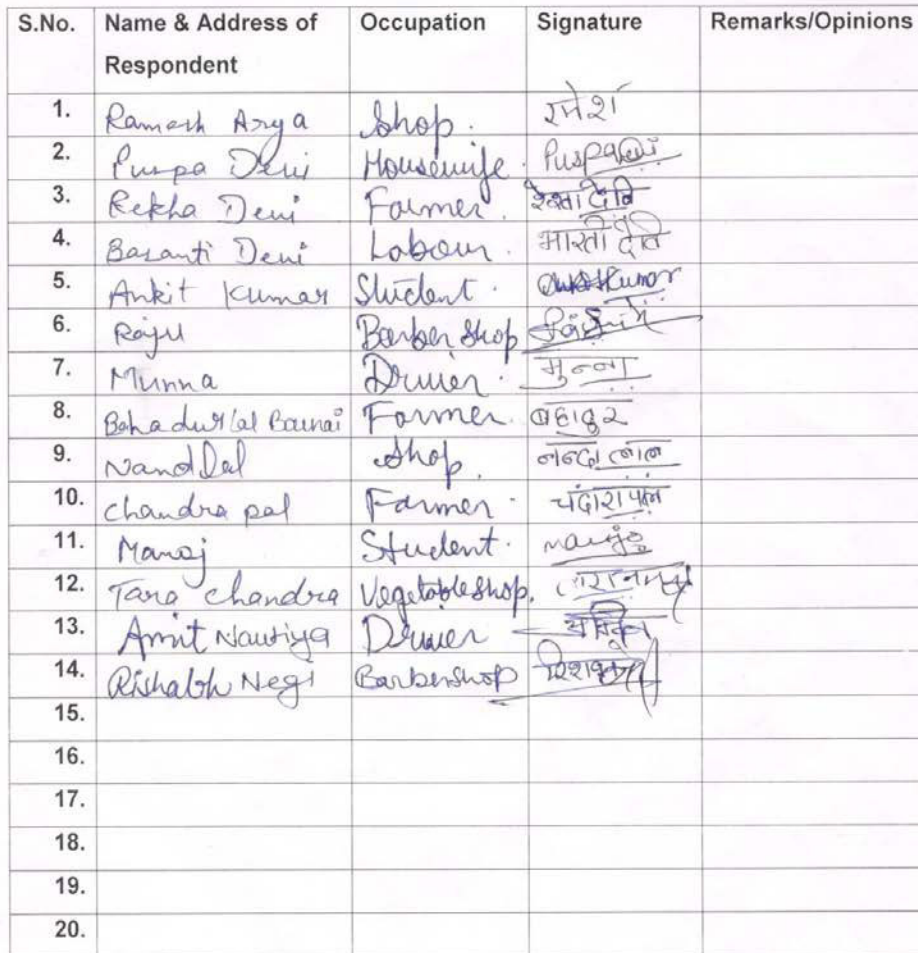 S.No. Name & Address of Respondent Occupation Signature Remarks/Opinions
1. Ramesh Arya Shop. रमेश
2. Puspa Devi Housewife. Puspa Devi
3. Rekha Devi Farmer. रेखा देवि
4. Basanti Devi Labour.
5. Ankit Kumar Student. Kumar
6. Raju Barber Shop
7. Munna Driver. मुन्ना
8. Bahadur lal Farmer. बहादुर
9. Nand Lal Shop. नन्दा लाल
10. Chandra pal Farmer.
11. Manoj Student. manoj
12. Tara Chandra Vegetable shop.
13. Amit Nautiya Driver
14. Rishabh Negi Barbershop
15.
16.
17.
18.
19.
20.